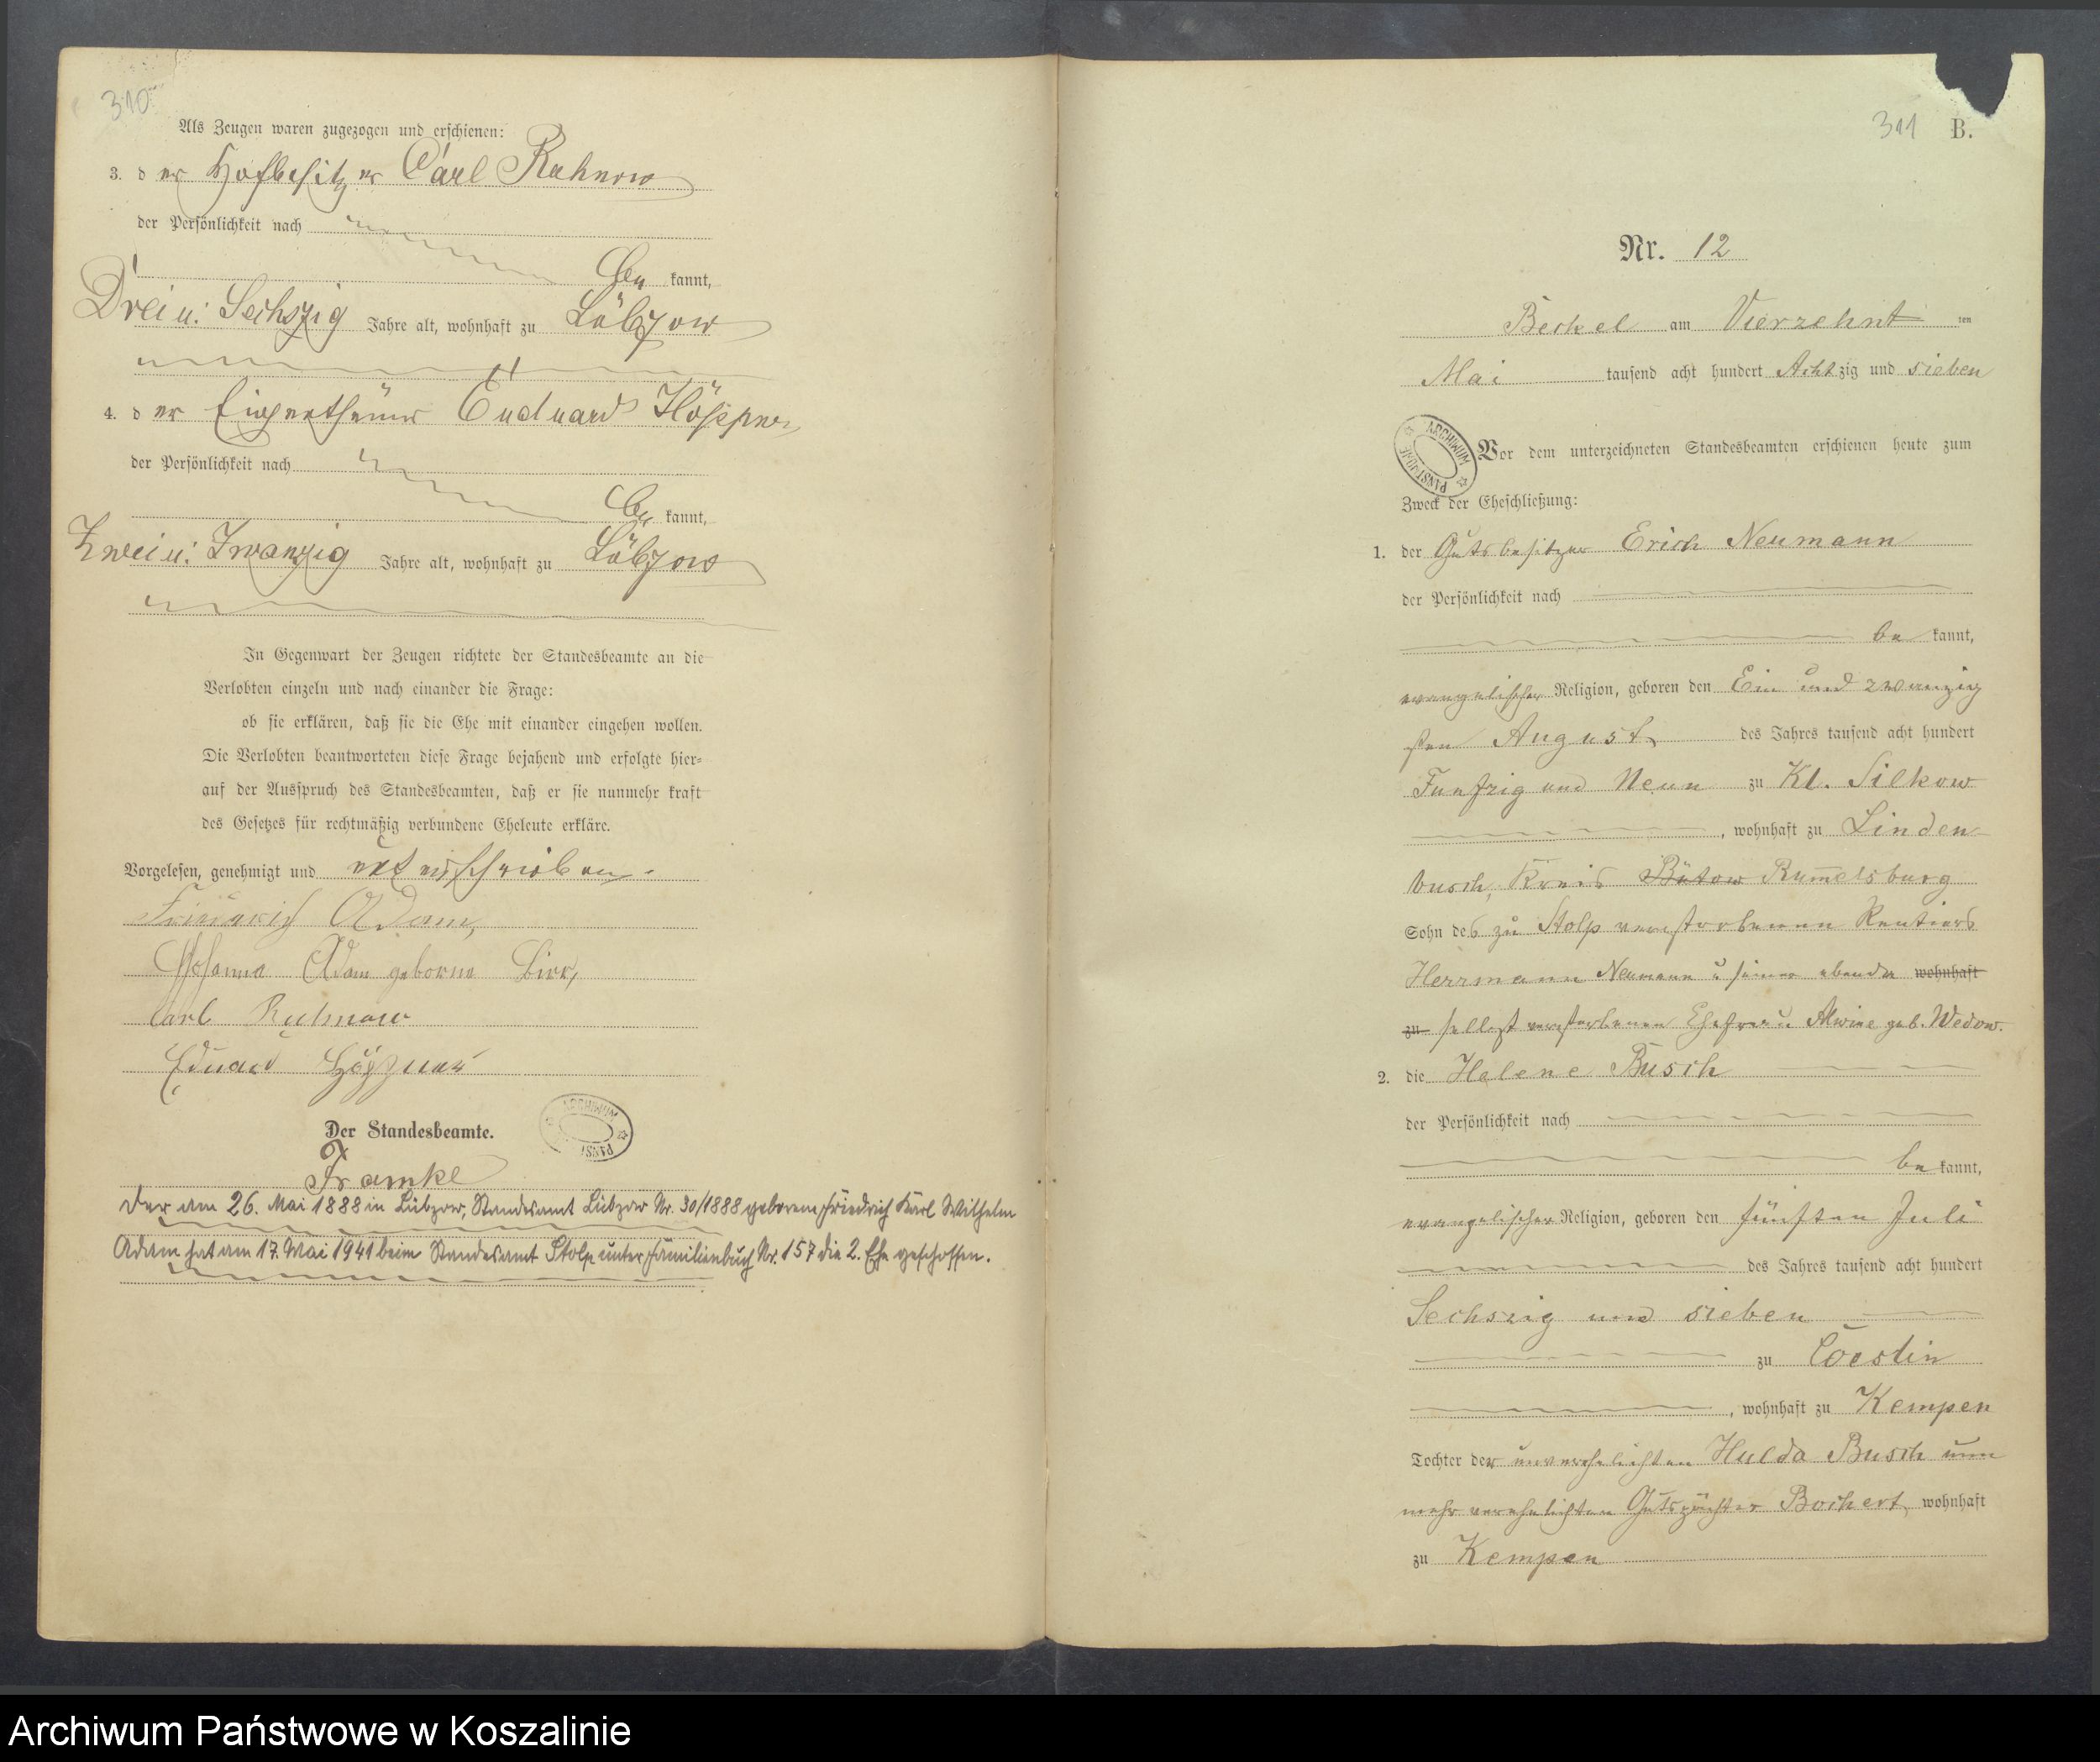 310
Als Zeugen waren zugezogen und erschienen:
3. der Hofbesitzer Carl Rahnow
der Persönlichkeit nach
be kannt,
Drei u: Sechszig Jahre alt, wohnhaft zu Lübzow
4. der Eigenthümer Euduard Höppner
der Persönlichkeit nach
be kannt,
Zwei u: Zwanzig Jahre alt, wohnhaft zu Lübzow
In Gegenwart der Zeugen richtete der Standesbeamte an die
Verlobten einzeln und nach einander die Frage:
ob sie erklären, daß sie die Ehe mit einander eingehen wollen.
Die Verlobten beantworteten diese Frage bejahend und erfolgte hier=
auf der Ausspruch des Standesbeamten, daß er sie nunmehr kraft
des Gesetzes für rechtmäßig verbundene Eheleute erkläre.
Vorgelesen, genehmigt und unterschrieben.
Friedrich Adam,
Johanna Adam geborne Birr,
Carl Rahnow
Eduard Höppner
Der Standesbeamte.
Framke
ARCHIWUM PAŃST
Der am 26. Mai 1888 in Lübzow, Standesamt Lübzow Nr. 30/1888 geborene Friedrich Karl Wilhelm
Adam hat am 17. Mai 1941 beim Standesamt Stolp unter Familienbuch Nr. 157 die 2. Ehe geschossen.
311 B.
Nr. 12
Beckel am Vierzehnt ten
Mai tausend acht hundert Achtzig und sieben
ARCHIWUM PAŃSTWOWE
Vor dem unterzeichneten Standesbeamten erschienen heute zum
Zweck der Eheschließung:
1. der Gutsbesitzer Erich Neumann
der Persönlichkeit nach
be kannt,
evangelischer Religion, geboren den Ein und zwanzig
sten August des Jahres tausend acht hundert
Funfzig und Neun zu Kl. Silkow
, wohnhaft zu Linden
busch, Kreis Bütow Rummelsburg
Sohn des zu Stolp verstorbenen Rentiers
Herrmann Neumann u seiner ebenda wohnhaft
zu selbst verstorbenen Ehefrau Alwine geb. Wedow.
2. die Helene Busch
der Persönlichkeit nach
be kannt,
evangelischer Religion, geboren den fünften Juli
des Jahres tausend acht hundert
Sechszig und sieben
zu Coeslin
, wohnhaft zu Kempen
Tochter der unverehelichten Hulda Busch nun
mehr verehelichten Gutspächter Borchert, wohnhaft
zu Kempen
Archiwum Państwowe w Koszalinie